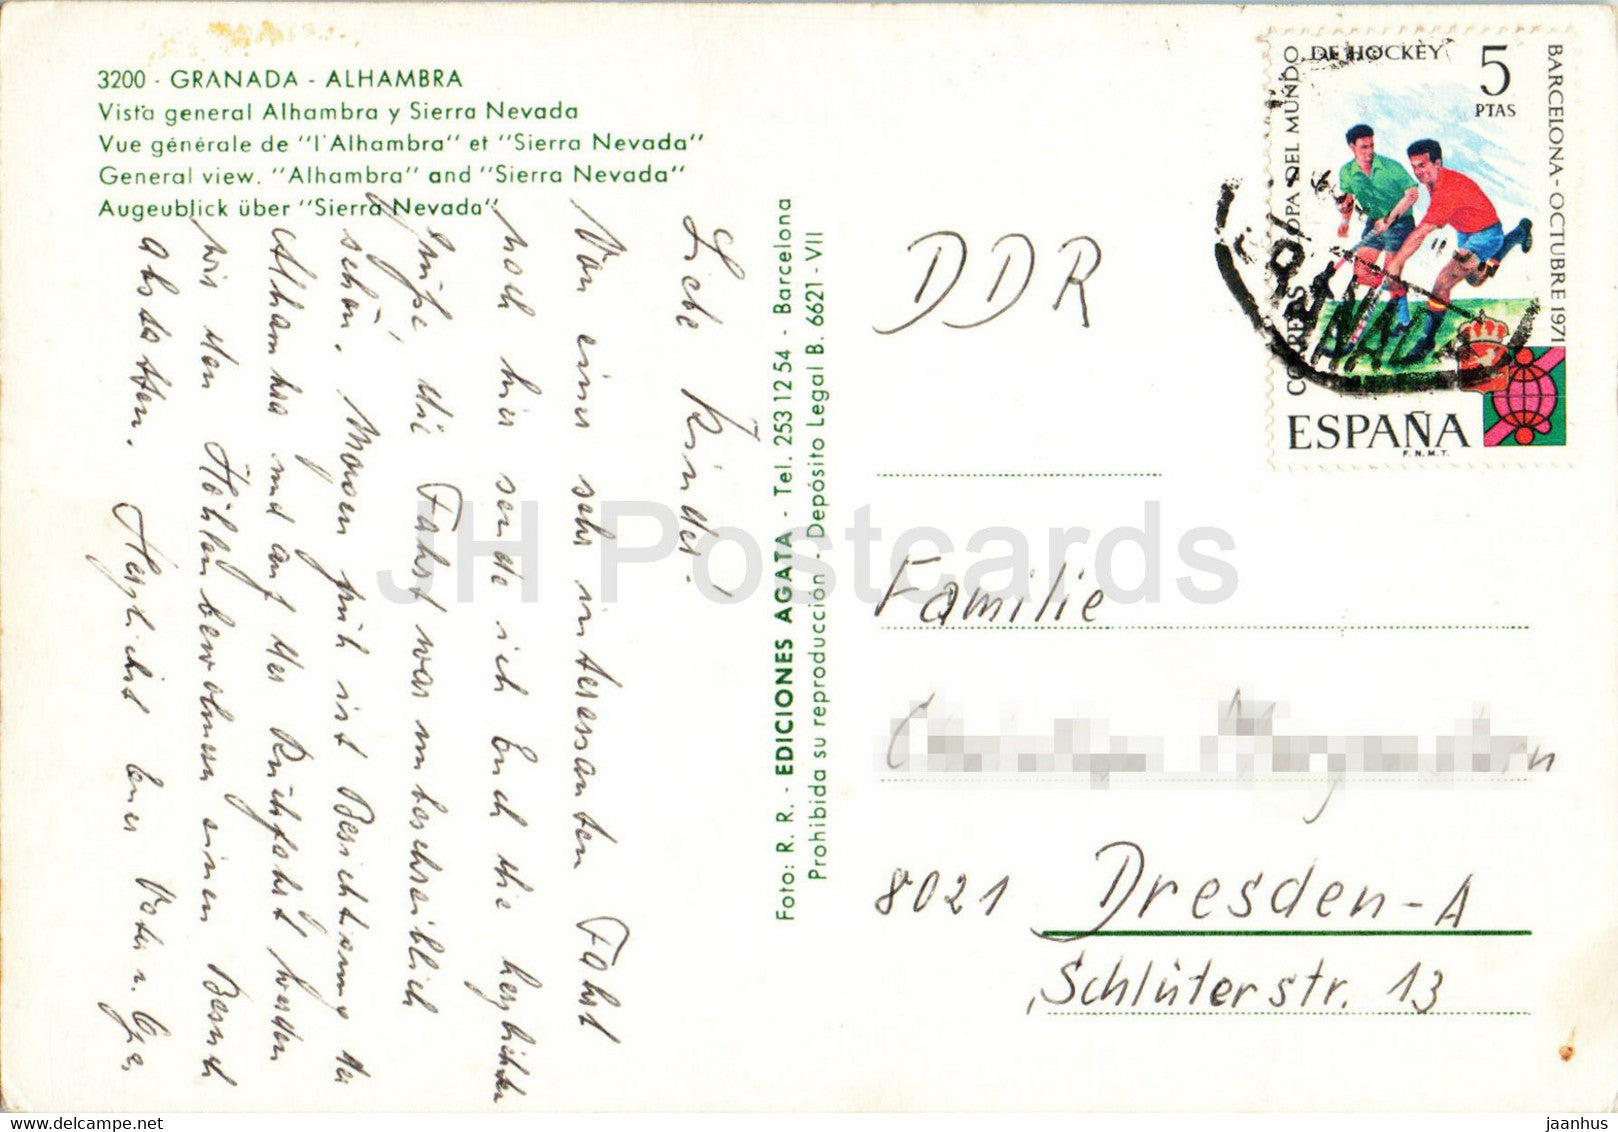 3200 - GRANADA - ALHAMBRA
Vista general Alhambra y Sierra Nevada
Vue générale de "l'Alhambra" et "Sierra Nevada"
General view. "Alhambra" and "Sierra Nevada"
Augeublick über "Sierra Nevada"
Liebe Kinder!
Von einer sehr interessanten Fahrt
noch hier sende ich Euch die herzlichsten
Grüße, die Fahrt war unbeschreiblich
schön. Morgen früh ist Besichtigung der
Alhambra und auf der Rückfahrt werden
wir den Höhlenbewohnern einen Besuch
abstatten. Herzlichst Euer Vater u. Opa.
Foto: R. R. - EDICIONES AGATA - Tel. 253 12 54 - Barcelona
Prohibida su reproducción - Depósito Legal B. 6621 - VII
CORREOS COPA DEL MUNDO
DE HOCKEY
5
PTAS
BARCELONA-OCTUBRE 1971
ESPAÑA
F.N.M.T.
GRANADA
DDR
Familie
8021 Dresden-A
Schlüterstr. 13
JH Postcards
jaanhus
delcampe.net